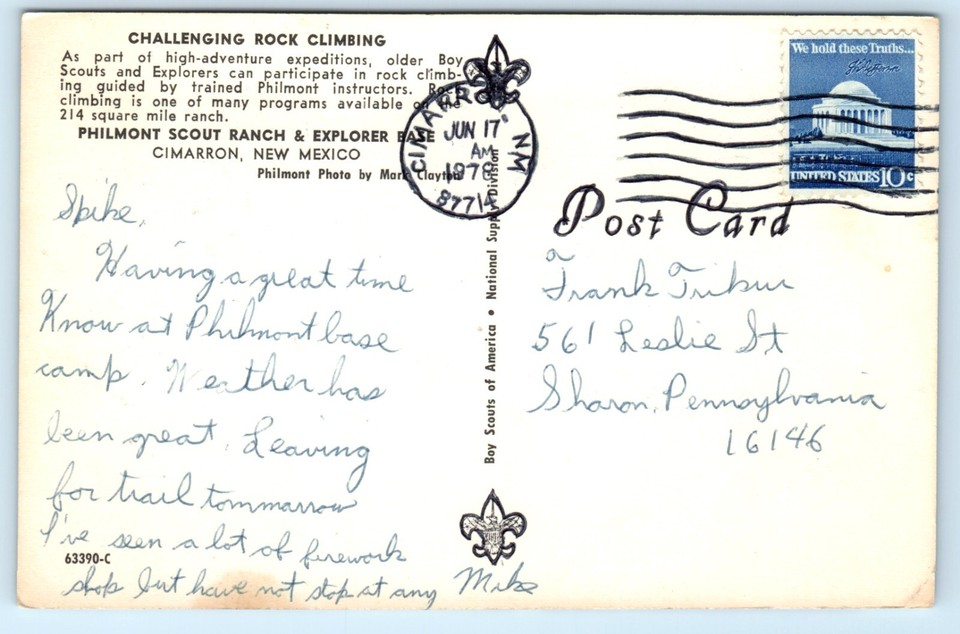 CHALLENGING ROCK CLIMBING
As part of high-adventure expeditions, older Boy
Scouts and Explorers can participate in rock climb-
ing guided by trained Philmont instructors. Rock
climbing is one of many programs available on the
214 square mile ranch.
PHILMONT SCOUT RANCH & EXPLORER BASE
CIMARRON, NEW MEXICO
Philmont Photo by Mark Clayton
CIMARRON NM
JUN 17
AM
1978
87714
We hold these Truths...
Th Jefferson
UNITED STATES 10c
Post Card
Boy Scouts of America • National Supply Division
Spike,
Having a great time
Know at Philmont base
camp. Weather has
been great. Leaving
for trail tommarrow
I've seen a lot of firework
shop but have not stop at any Mike
Frank Tribur
561 Leslie St
Sharon, Pennsylvania
16146
63390-C